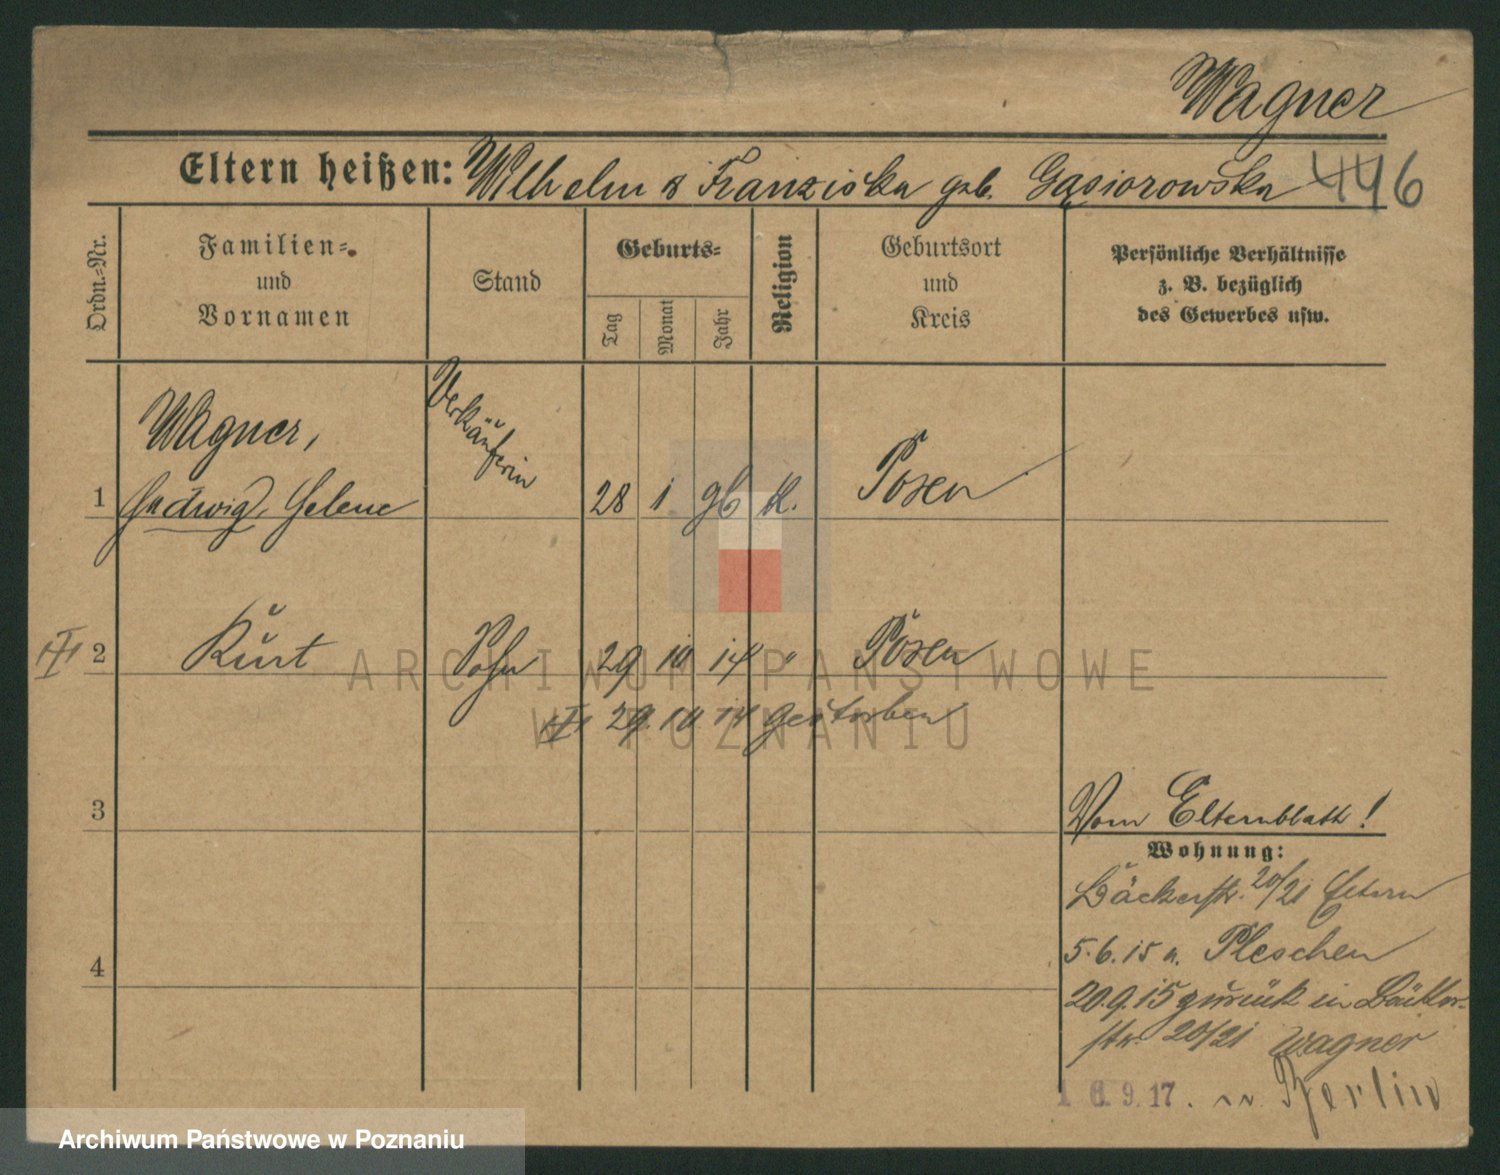 Wagner
Eltern heißen: Wilhelm & Franziska geb. Gąsiorowska 446
Ordn.-Nr.
Familien- und Vornamen
Stand
Geburts-
Tag
Monat
Jahr
Religion
Geburtsort und Kreis
Persönliche Verhältnisse z. B. bezüglich des Gewerbes usw.
Wagner,
Verkäuferin
1 Hedwig, Helene 28 1 96 k. Posen
2 Kurt Sohn 29 10 14 " Posen
29. 10 14 gestorben
3
Vom Elternblatt!
Wohnung:
Bäckerstr. 20/21 Eltern
4
5.6.15 n. Pleschen
20.9.15 zurück in Bäcker-
str. 20/21 Wagner
1 6. 9. 17. n. Berlin
ARCHIWUM PAŃSTWOWE
W POZNANIU
Archiwum Państwowe w Poznaniu